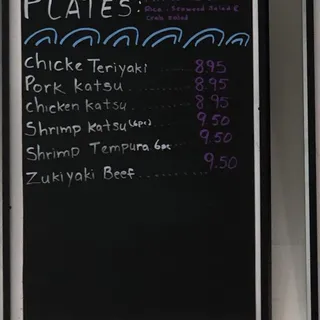 PLATES:
Rice, Seaweed Salad &
Crab Salad
Chicke Teriyaki ....... 8.95
Pork Katsu ....... 8.95
Chicken Katsu ....... 8.95
Shrimp Katsu (6pc) ....... 9.50
Shrimp Tempura 6pc ....... 9.50
Zukiyaki Beef .......... 9.50